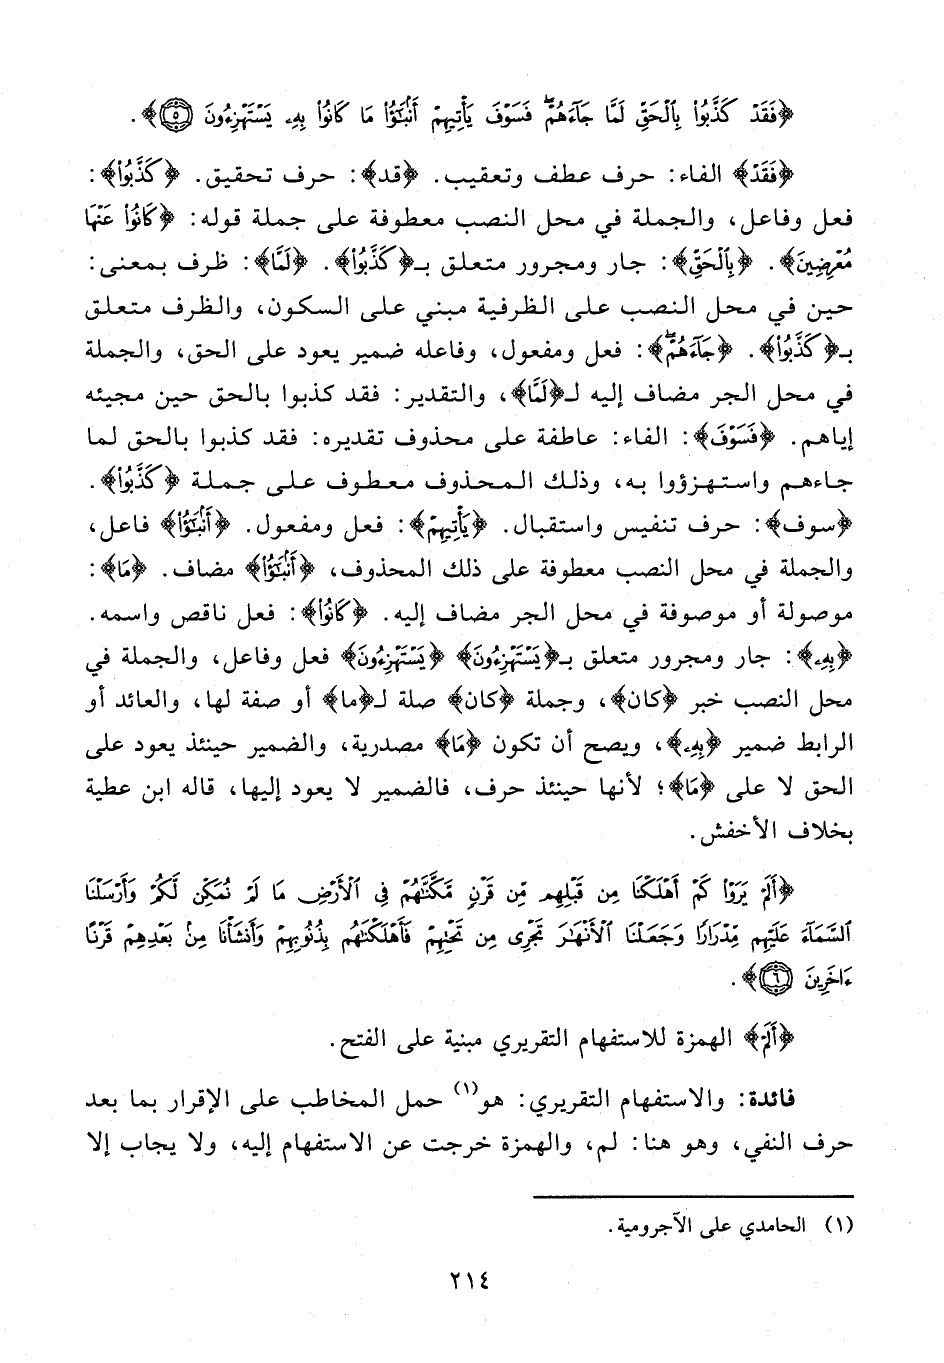 ﴿فَقَدْ كَذَّبُوا۟ بِٱلْحَقِّ لَمَّا جَآءَهُمْ ۖ فَسَوْفَ يَأْتِيهِمْ أَنۢبَـٰٓؤُا۟ مَا كَانُوا۟ بِهِۦ يَسْتَهْزِءُونَ ٥﴾.
﴿فَقَدْ﴾ الفاء: حرف عطف وتعقيب. ﴿قد﴾: حرف تحقيق. ﴿كَذَّبُوا۟﴾:
فعل وفاعل، والجملة في محل النصب معطوفة على جملة قوله: ﴿كَانُوا۟ عَنْهَا
مُعْرِضِينَ﴾. ﴿بِٱلْحَقِّ﴾: جار ومجرور متعلق بـ﴿كَذَّبُوا۟﴾. ﴿لَمَّا﴾: ظرف بمعنى:
حين في محل النصب على الظرفية مبني على السكون، والظرف متعلق
بـ﴿كَذَّبُوا۟﴾. ﴿جَآءَهُمْ ۖ﴾: فعل ومفعول، وفاعله ضمير يعود على الحق، والجملة
في محل الجر مضاف إليه لـ﴿لَمَّا﴾، والتقدير: فقد كذبوا بالحق حين مجيئه
إياهم. ﴿فَسَوْفَ﴾: الفاء: عاطفة على محذوف تقديره: فقد كذبوا بالحق لما
جاءهم واستهزؤوا به، وذلك المحذوف معطوف على جملة ﴿كَذَّبُوا۟﴾.
﴿سوف﴾: حرف تنفيس واستقبال. ﴿يَأْتِيهِمْ﴾: فعل ومفعول. ﴿أَنۢبَـٰٓؤُا۟﴾ فاعل،
والجملة في محل النصب معطوفة على ذلك المحذوف، ﴿أَنۢبَـٰٓؤُا۟﴾ مضاف. ﴿مَا﴾:
موصولة أو موصوفة في محل الجر مضاف إليه. ﴿كَانُوا۟﴾: فعل ناقص واسمه.
﴿بِهِۦ﴾: جار ومجرور متعلق بـ﴿يَسْتَهْزِءُونَ﴾ ﴿يَسْتَهْزِءُونَ﴾ فعل وفاعل، والجملة في
محل النصب خبر ﴿كان﴾، وجملة ﴿كان﴾ صلة لـ﴿ما﴾ أو صفة لها، والعائد أو
الرابط ضمير ﴿بِهِۦ﴾، ويصح أن تكون ﴿مَا﴾ مصدرية، والضمير حينئذ يعود على
الحق لا على ﴿مَا﴾؛ لأنها حينئذ حرف، فالضمير لا يعود إليها، قاله ابن عطية
بخلاف الأخفش.
﴿أَلَمْ يَرَوْا۟ كَمْ أَهْلَكْنَا مِن قَبْلِهِم مِّن قَرْنٍ مَّكَّنَّـٰهُمْ فِى ٱلْأَرْضِ مَا لَمْ نُمَكِّن لَّكُمْ وَأَرْسَلْنَا
ٱلسَّمَآءَ عَلَيْهِم مِّدْرَارًا وَجَعَلْنَا ٱلْأَنْهَـٰرَ تَجْرِى مِن تَحْتِهِمْ فَأَهْلَكْنَـٰهُم بِذُنُوبِهِمْ وَأَنشَأْنَا مِنۢ بَعْدِهِمْ قَرْنًا
ءَاخَرِينَ ٦﴾.
﴿أَلَمْ﴾ الهمزة للاستفهام التقريري مبنية على الفتح.
فائدة: والاستفهام التقريري: هو(١) حمل المخاطب على الإقرار بما بعد
حرف النفي، وهو هنا: لم، والهمزة خرجت عن الاستفهام إليه، ولا يجاب إلا
(١) الحامدي على الآجرومية.
٢١٤